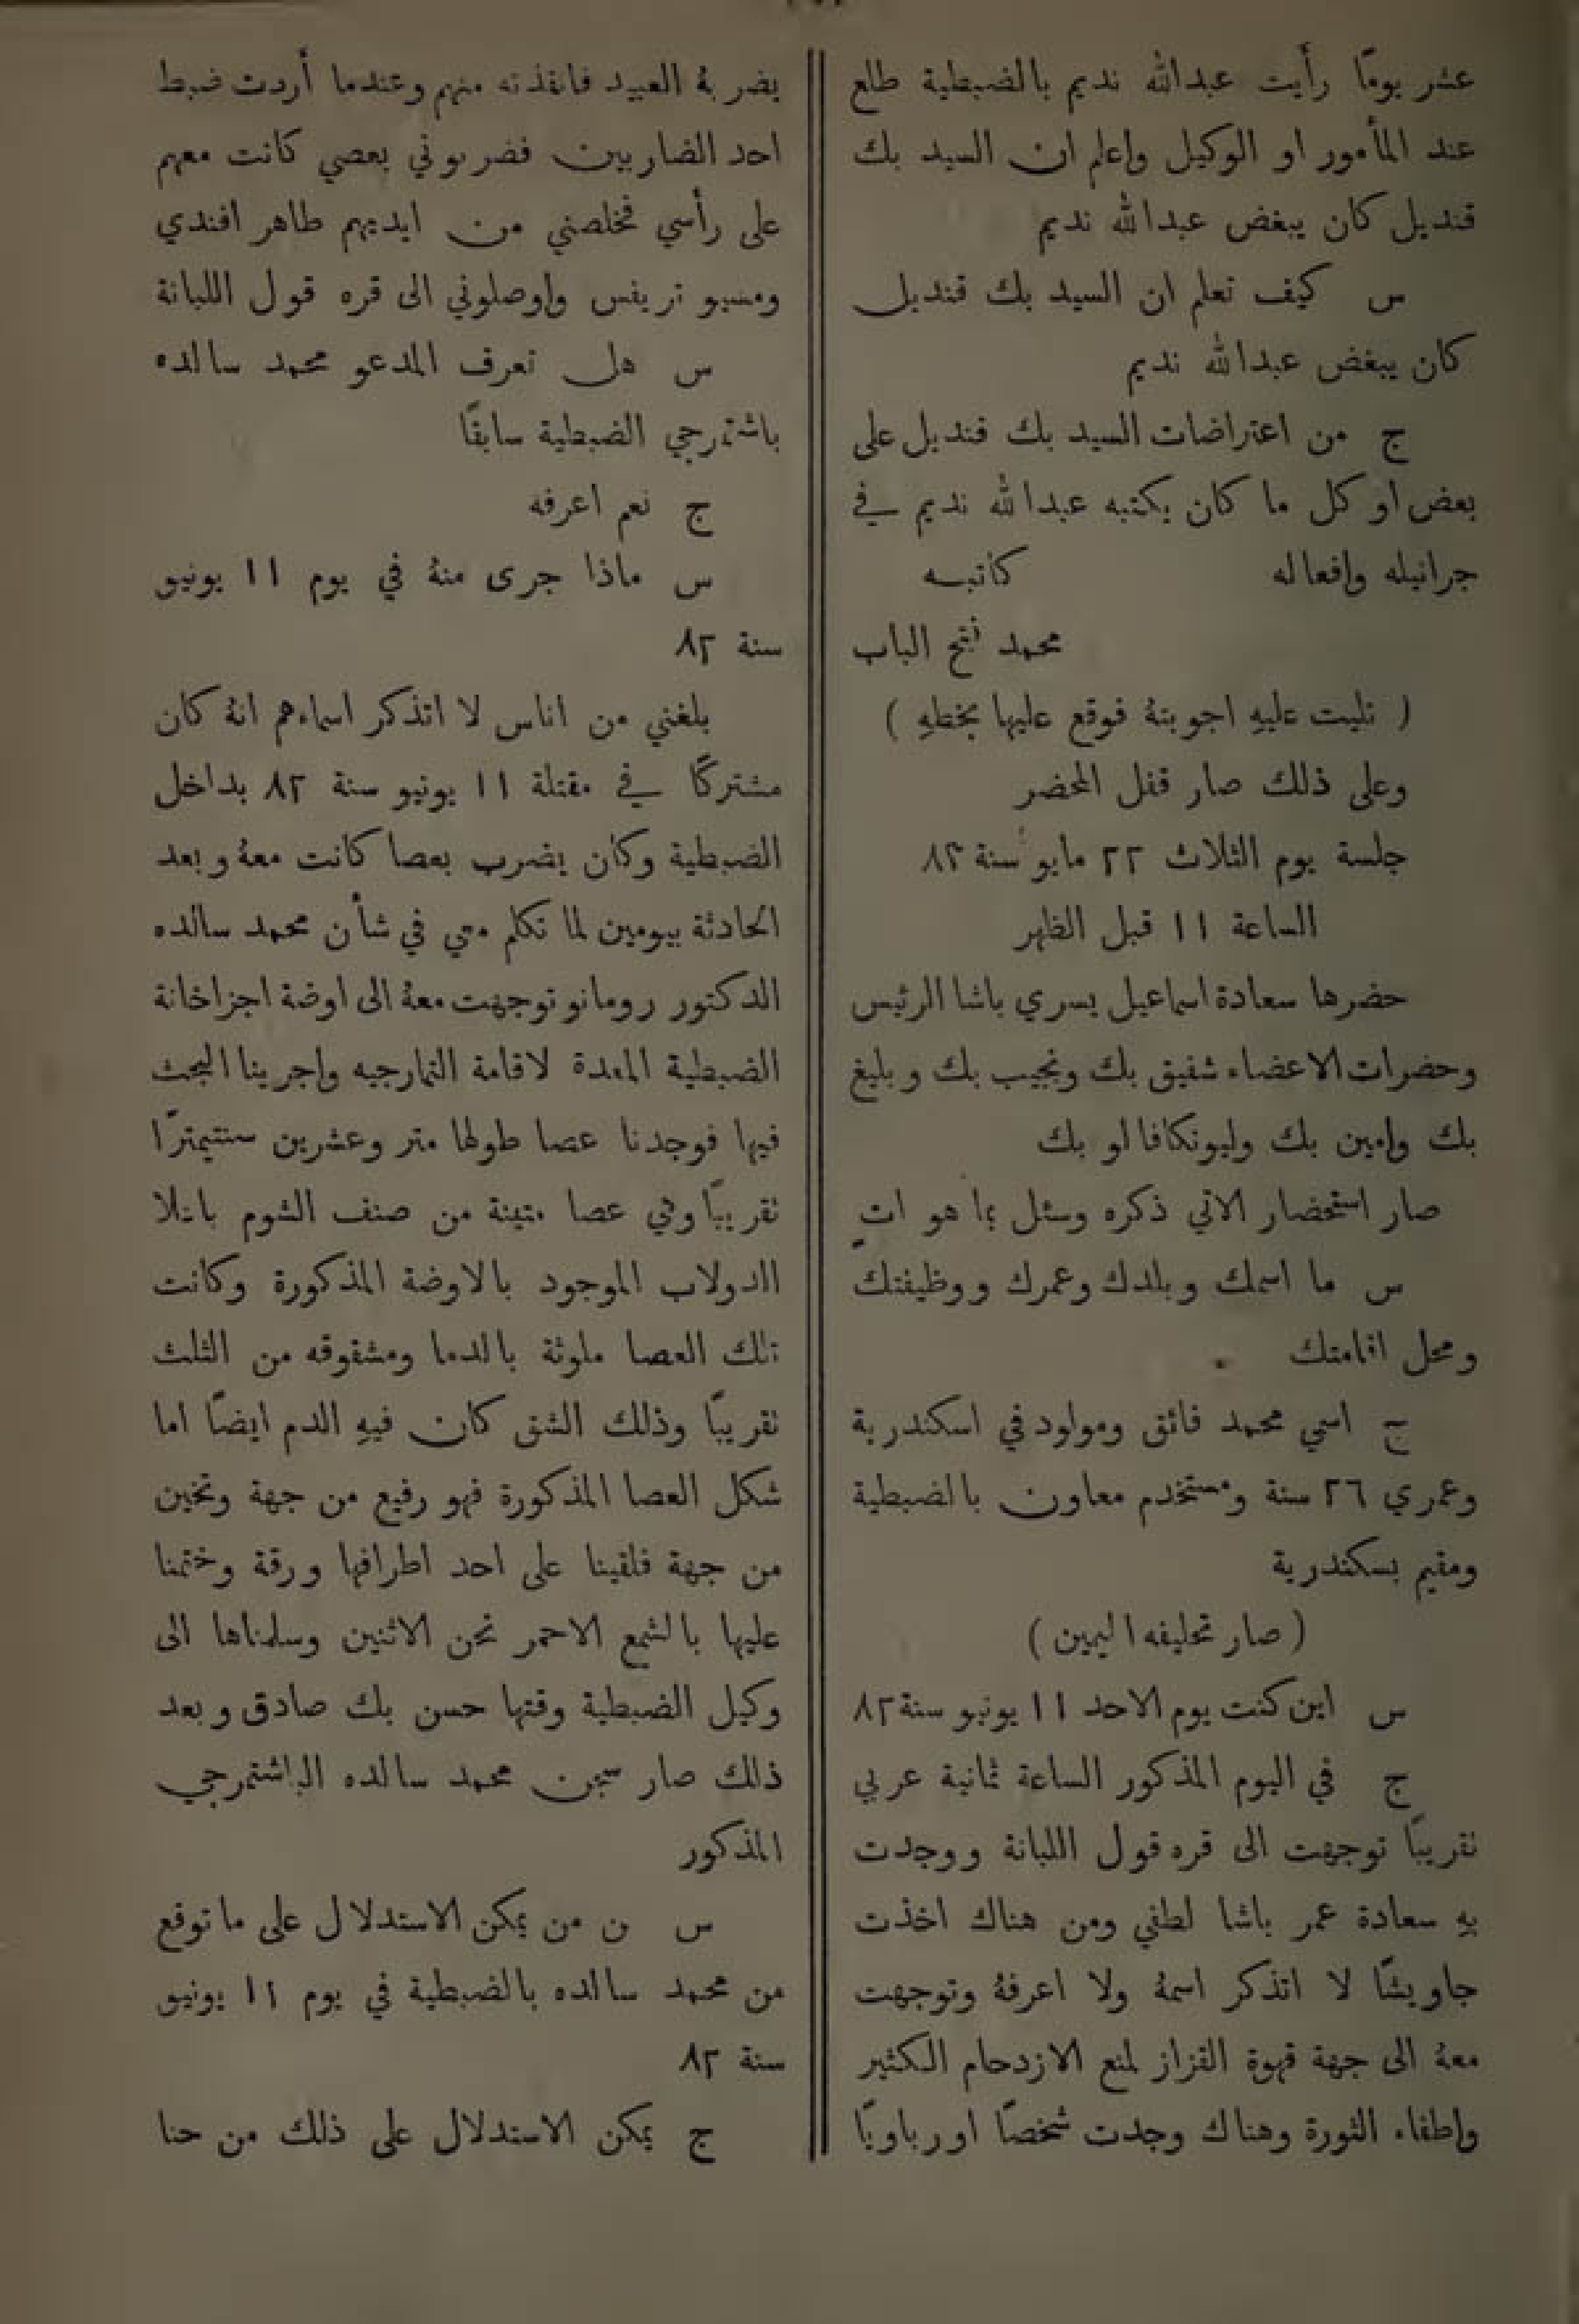 عشر يومًا رأيت عبدالله نديم بالضبطية طلع
عند المأمور او الوكيل واعلم ان السيد بك
قنديل كان يبغض عبدالله نديم
س كيف تعلم ان السيد بك قنديل
كان يبغض عبدالله نديم
ج من اعتراضات السيد بك قنديل على
بعض او كل ما كان يكتبه عبدالله نديم في
جرانيله وافعاله كاتبه
محمد فتح الباب
( تليت عليهِ اجوبتهُ فوقع عليها بخطهِ )
وعلى ذلك صار قفل المحضر
جلسة يوم الثلاث ٢٢ مايو سنة ٨٣
الساعة ١١ قبل الظهر
حضرها سعادة اسماعيل يسري باشا الرئيس
وحضرات الاعضاء شفيق بك ونجيب بك وبليغ
بك وامين بك وليونكافالو بك
صار استحضار الاتي ذكره وسئل بما هو اتٍ
س ما اسمك وبلدك وعمرك ووظيفتك
ومحل اقامتك
ج اسمي محمد فائق ومولود في اسكندرية
وعمري ٢٦ سنة ومستخدم معاون بالضبطية
ومقيم بسكندرية
( صار تحليفه اليمين )
س اين كنت يوم الاحد ١١ يونيو سنة ٨٢
ج في اليوم المذكور الساعة ثمانية عربي
تقريبًا توجهت الى قره قول اللبانة ووجدت
بهِ سعادة عمر باشا لطفي ومن هناك اخذت
جاويشًا لا اتذكر اسمهُ ولا اعرفهُ وتوجهت
معهُ الى جهة قهوة القزاز لمنع الازدحام الكثير
واطفاء الثورة وهناك وجدت شخصًا اورباويًا
يضربهُ العبيد فانقذته منهم وعندما أردت ضبط
احد الضاربين فضربوني بعصي كانت معهم
على رأسي فخلصني من ايديهم طاهر افندي
ومسيو تريفس واوصلوني الى قره قول اللبانة
س هل تعرف المدعو محمد سالده
باشتمرجي الضبطية سابقًا
ج نعم اعرفه
س ماذا جرى منهُ في يوم ١١ يونيو
سنة ٨٢
بلغني من اناس لا اتذكر اسماءهم انهُ كان
مشتركًا في مقتلة ١١ يونيو سنة ٨٢ بداخل
الضبطية وكان يضرب بعصا كانت معهُ وبعد
الحادثة بيومين لما تكلم معي في شأن محمد سالده
الدكتور رومانو توجهت معهُ الى اوضة اجزاخانة
الضبطية المعدة لاقامة التمارجيه واجرينا البحث
فيها فوجدنا عصا طولها متر وعشرين سنتيمترًا
تقريبًا وهي عصا متينة من صنف الشوم باعلا
الدولاب الموجود بالاوضة المذكورة وكانت
تلك العصا ملوثة بالدما ومشقوقه من الثلث
تقريبًا وذلك الشق كان فيهِ الدم ايضًا اما
شكل العصا المذكورة فهو رفيع من جهة وتخين
من جهة فلقينا على احد اطرافها ورقة وختمنا
عليها بالشمع الاحمر نحن الاثنين وسلمناها الى
وكيل الضبطية وقتها حسن بك صادق وبعد
ذلك صار سجن محمد سالده الباشتمرجي
المذكور
س ن من يمكن الاستدلال على ما توقع
من محمد سالده بالضبطية في يوم ١١ يونيو
سنة ٨٢
ج يمكن الاستدلال على ذلك من حنا